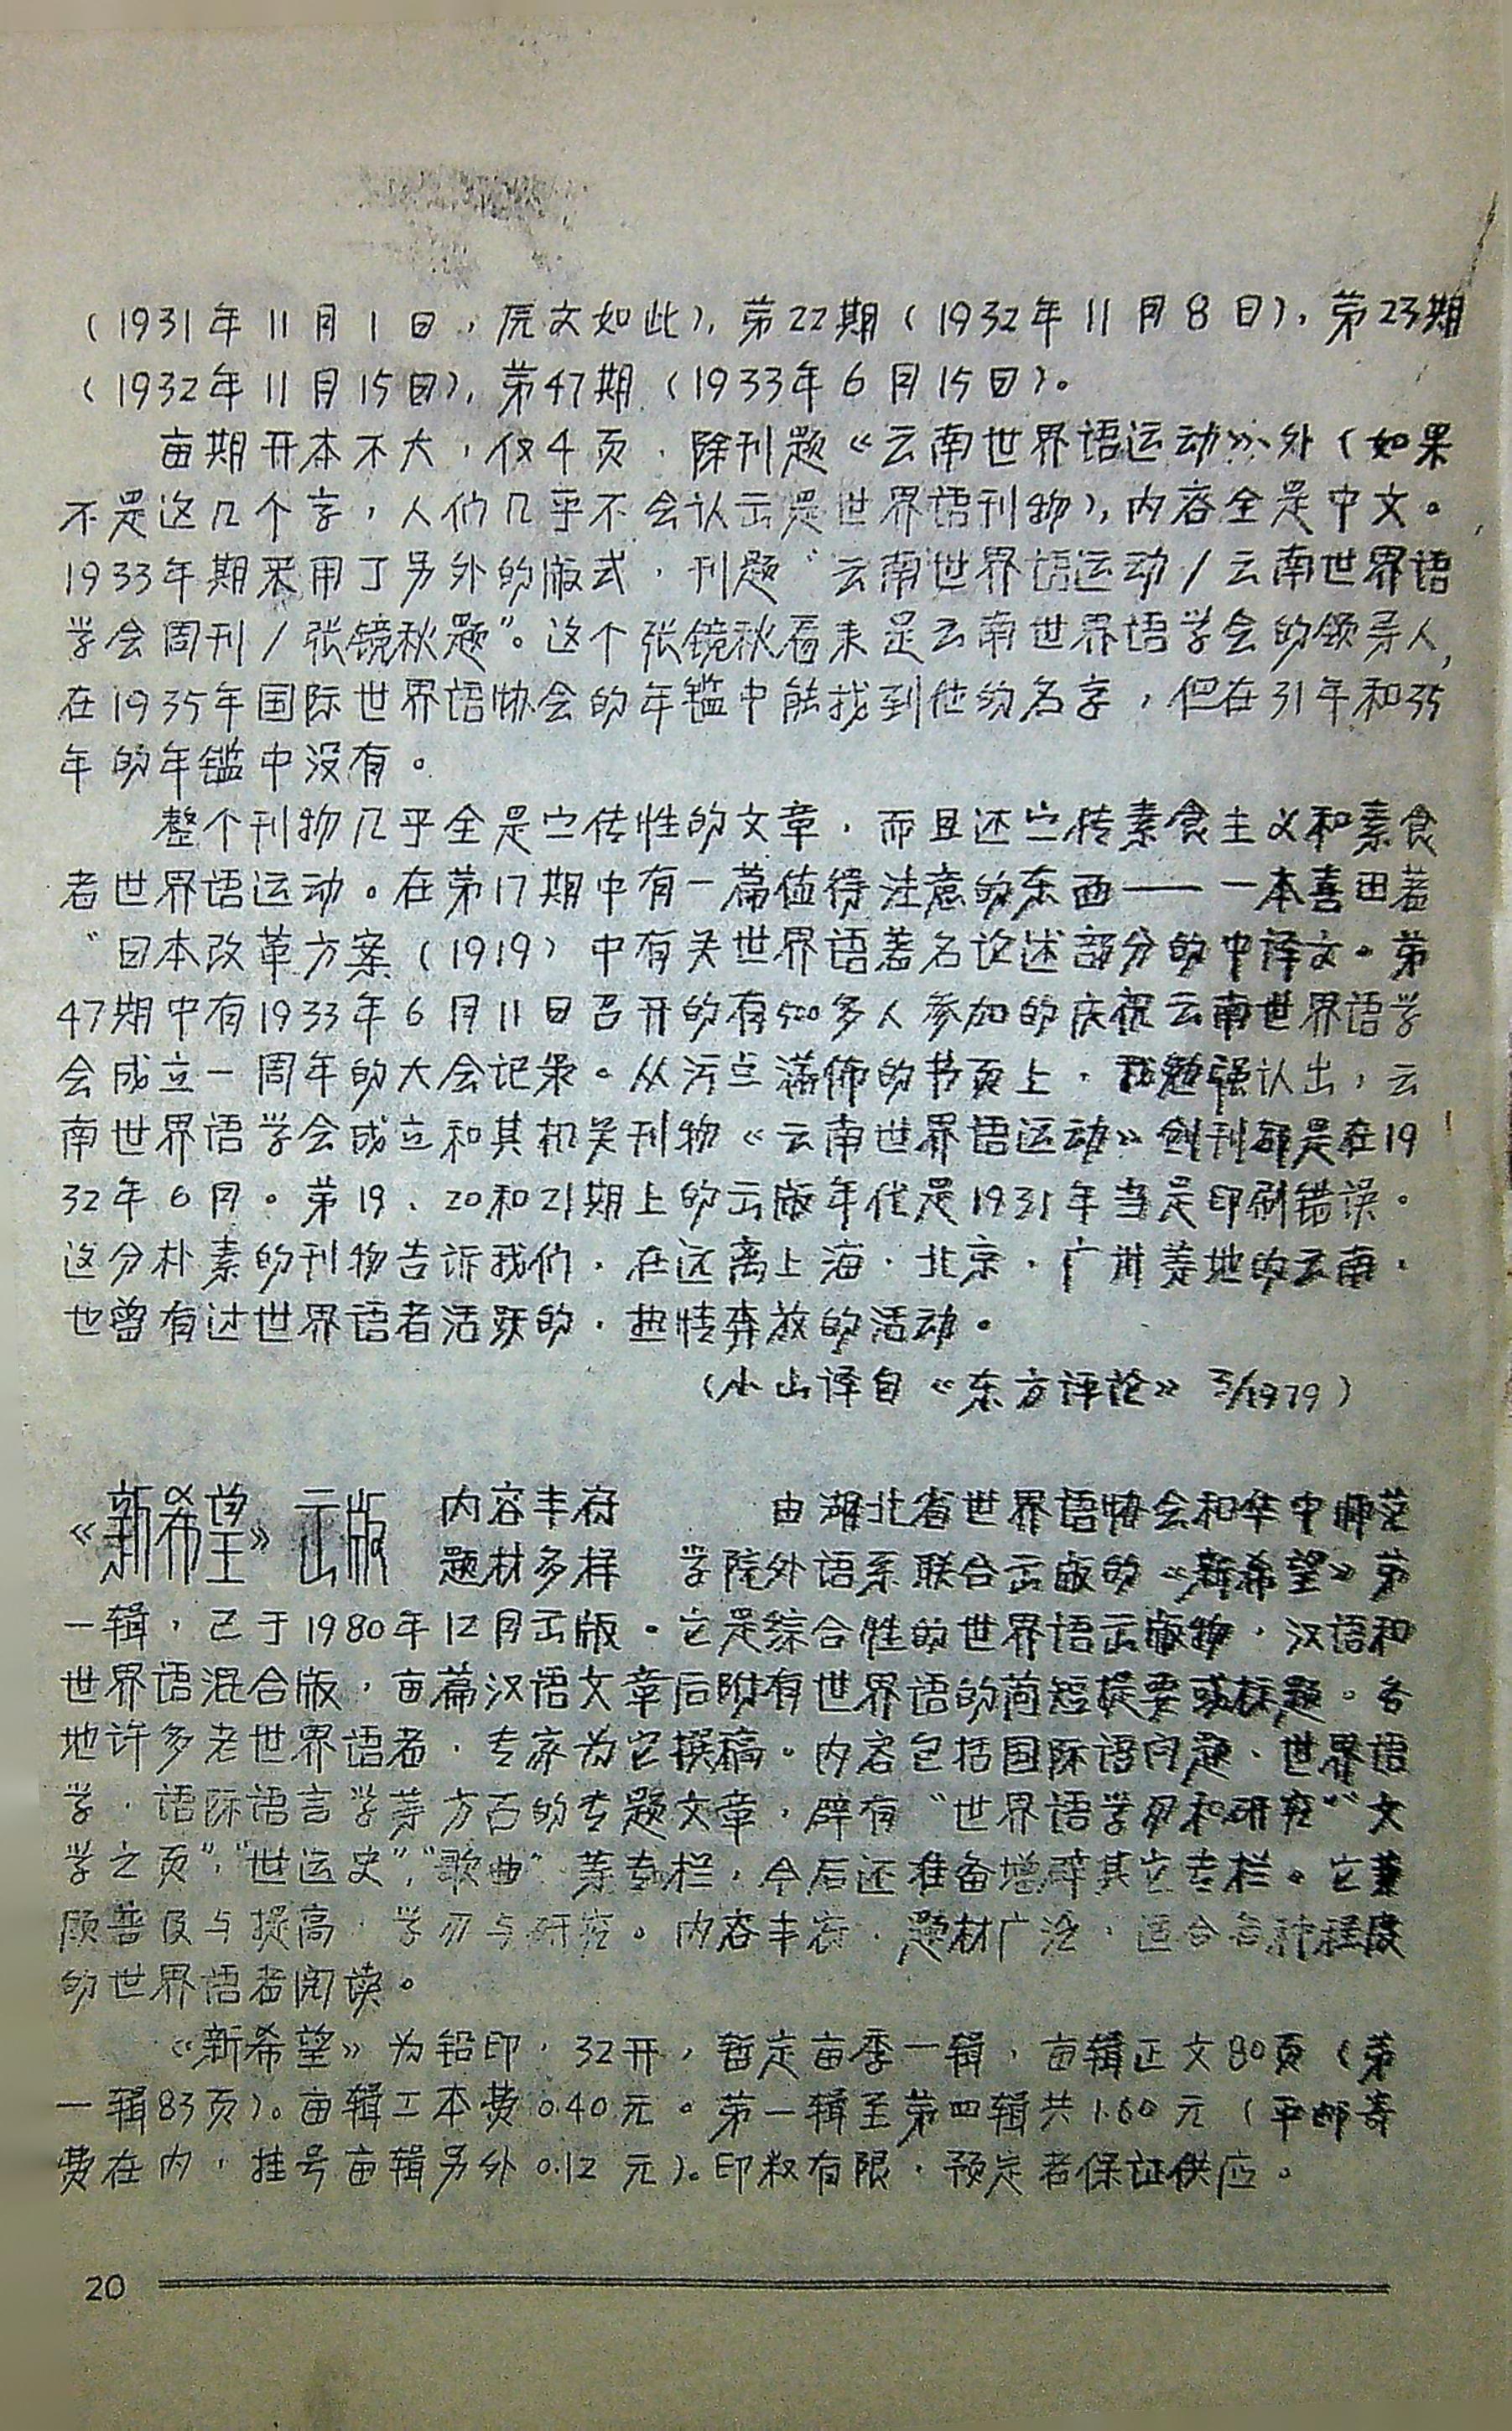 （1931年11月1日，原文如此），第22期（1932年11月8日），第23期
（1932年11月15日），第47期（1933年6月15日）。
每期开本不大，仅4页，除刊题《云南世界语运动》外（如果
不是这几个字，人们几乎不会认出是世界语刊物），内容全是中文。
1933年期采用了另外的版式，刊题“云南世界语运动/云南世界语
学会周刊/张镜秋题”。这个张镜秋看来是云南世界语学会的领导人，
在1935年国际世界语协会的年鉴中能找到他的名字，但在31年和35
年的年鉴中没有。
整个刊物几乎全是宣传性的文章，而且还宣传素食主义和素食
者世界语运动。在第17期中有一篇值得注意的东西——一本喜田著
“日本改革方案（1919）中有关世界语著名论述部分的中译文。第
47期中有1933年6月11日召开的有500多人参加的庆祝云南世界语学
会成立一周年的大会记录。从污点满佈的书页上，我勉强认出，云
南世界语学会成立和其机关刊物《云南世界语运动》创刊都是在19
32年6月。第19、20和21期上的出版年代是1931年当是印刷错误。
这分朴素的刊物告诉我们，在远离上海、北京、广州等地的云南，
也曾有过世界语者活跃的，热情奔放的活动。
（小山译自《东方评论》3/1979）
《新希望》出版
内容丰富
题材多样
由湖北省世界语协会和华中师范
学院外语系联合出版的《新希望》第
一辑，已于1980年12月出版。它是综合性的世界语出版物，汉语和
世界语混合版，每篇汉语文章后附有世界语的简短提要或标题。各
地许多老世界语者，专家为它撰稿。内容包括国际语问题、世界语
学，语际语言学等方面的专题文章，辟有“世界语学习和研究”“文
学之页”，“世运史”，“歌曲”等专栏，今后还准备增辟其它专栏。它兼
顾普及与提高，学习与研究。内容丰富，题材广泛，适合各种程度
的世界语者阅读。
《新希望》为铅印，32开，暂定每季一辑，每辑正文80页（第
一辑83页）。每辑工本费0.40元。第一辑至第四辑共1.60元（平邮寄
费在内，挂号每辑另外0.12元）。印数有限，预定者保证供应。
20